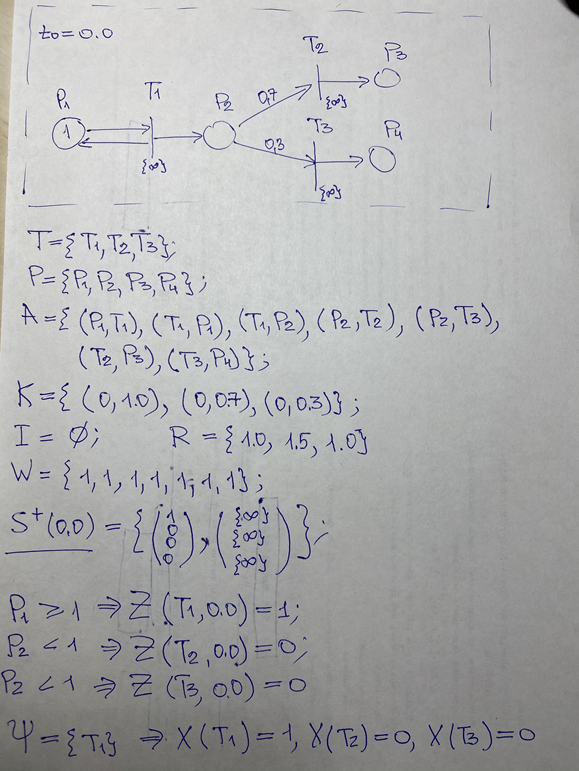 t₀=0.0
T2
P3
0,7
{∞}
P1
T1
P2
T3
P4
1
0,3
{∞}
{∞}
T={T1,T2,T3};
P={P1,P2,P3,P4};
A={(P1,T1), (T1,P1), (T1,P2), (P2,T2), (P2,T3),
(T2,P3), (T3,P4)};
K={(0,1.0), (0,0.7), (0,0.3)};
I = ∅; R = {1.0, 1.5, 1.0}
W = {1,1,1,1,1,1,1};
S⁺(0,0) = {(1 0 0 0), ({∞} {∞} {∞})};
P1 ⩾ 1 ⇒ Z(T1,0.0)=1;
P2 < 1 ⇒ Z(T2,0.0)=0;
P2 < 1 ⇒ Z(T3,0.0)=0
Ψ={T1} ⇒ X(T1)=1, X(T2)=0, X(T3)=0